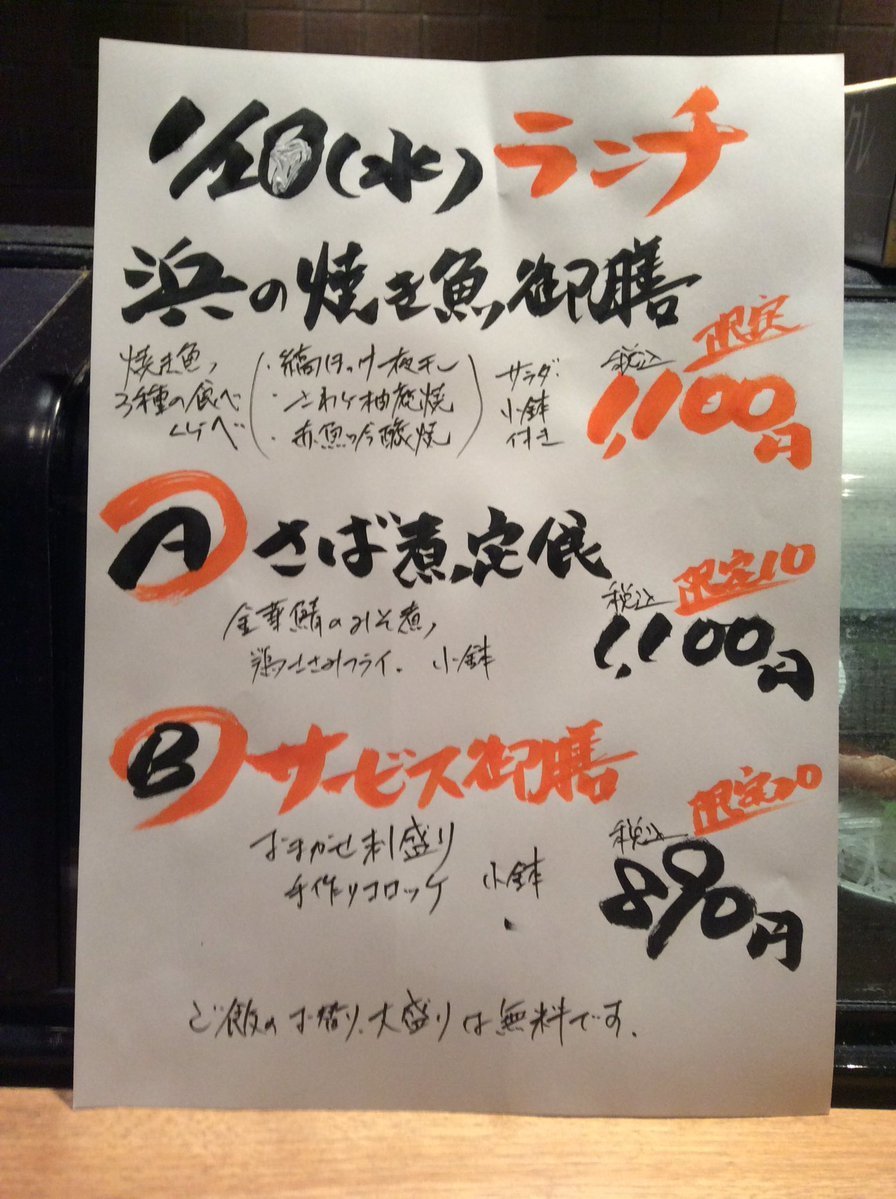 (水)ランチ
浜の焼き魚御膳
焼き魚、
3種の食べ
くらべ
・縞ほっけ一夜干し
・さわら柚庵焼
・赤魚吟醸焼
サラダ
小鉢
付き
限定
税込
1,100円
A さば煮定食
金華鯖のみそ煮、
鶏ささみフライ、小鉢
限定10
税込
1,100円
B サービス御膳
おまかせ刺盛り
手作りコロッケ 小鉢
限定20
税込
890円
ご飯のお替り、大盛りは無料です。